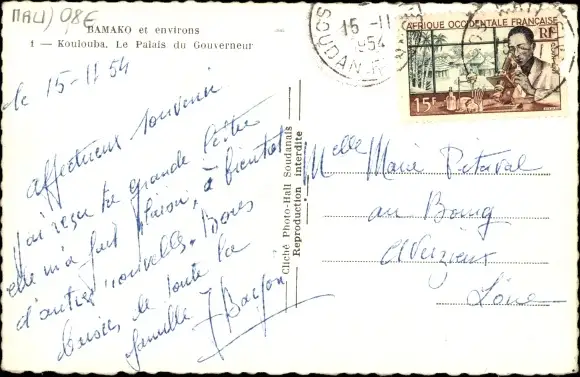 MALI) 08E
BAMAKO et environs
1 — Koulouba. Le Palais du Gouverneur
le 15-11 54
affectueux souvenir
J'ai reçu ta grande lettre
elle m'a fait plaisir, à bientôt
d'autres nouvelles. Bons
baisers, de toute la
famille
Cliché Photo-Hall Soudanais
Reproduction interdite
SOUDAN
15-11
1954
AFRIQUE OCCIDENTALE FRANÇAISE
RF
15F
Melle Marie
au Bourg
Loire